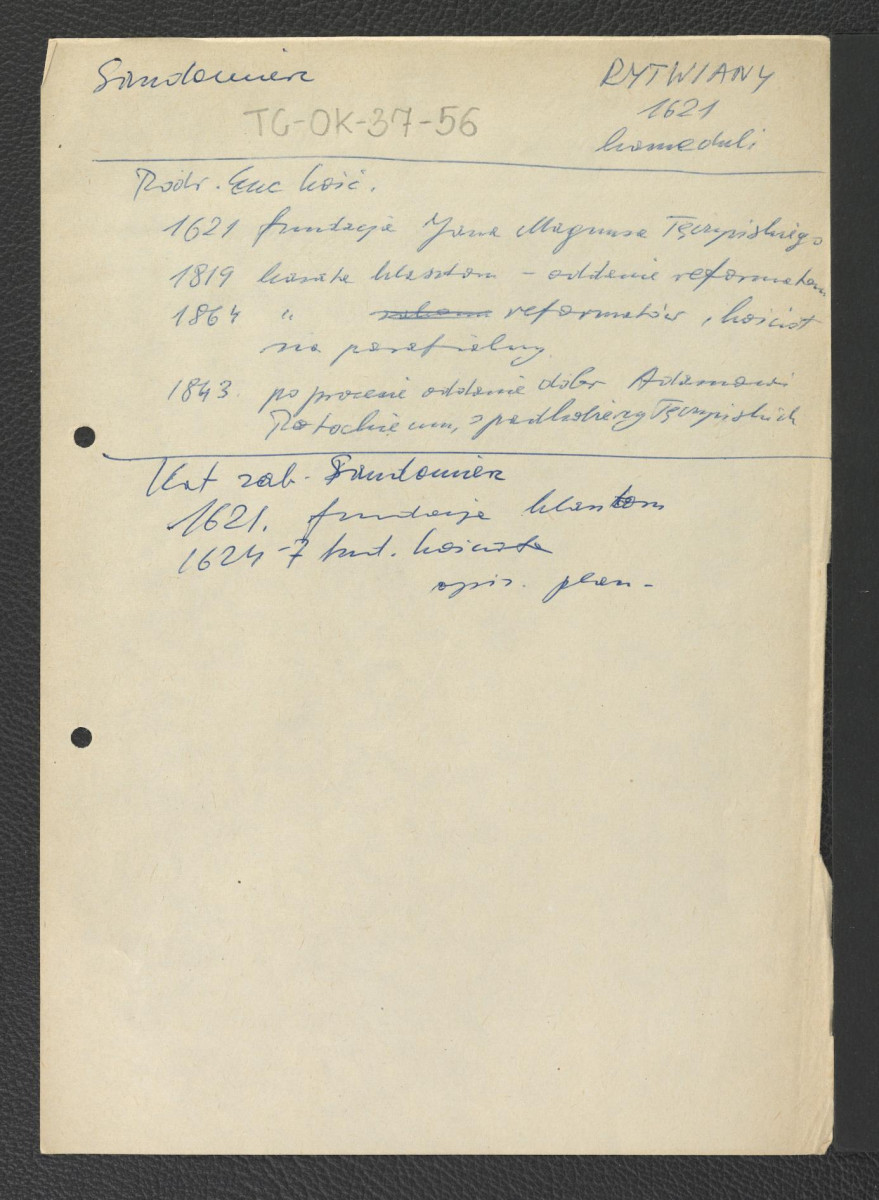 Sandomierz
RYTWIANY
TG-OK-37-56
1621
kameduli
Podr. Enc Kość.
1621 fundacja Jana Magnusa Tęczyńskiego
1819 kasata klasztoru - oddanie reformatom
1864 " reformatów, kościół
na parafialny
1843. po procesie oddanie dóbr Adamowi
Potockiemu, spadkobiercy Tęczyńskich
Kat zab. Sandomierz
1621. fundacja klasztoru
1624-7 bud. kościoła
opis. plan-